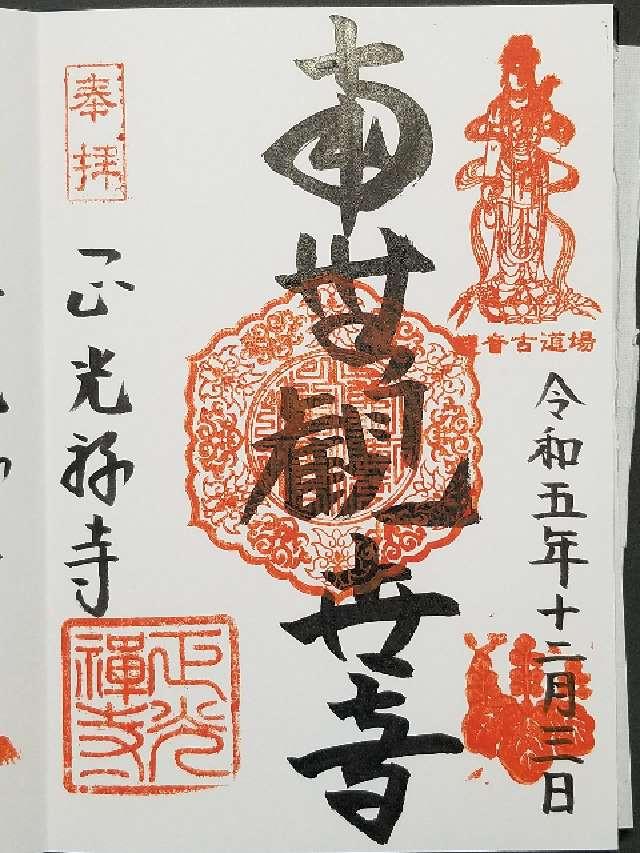 観音古道場
令和五年十二月三日
南無観世音
奉拝
正光禅寺
正光禪寺